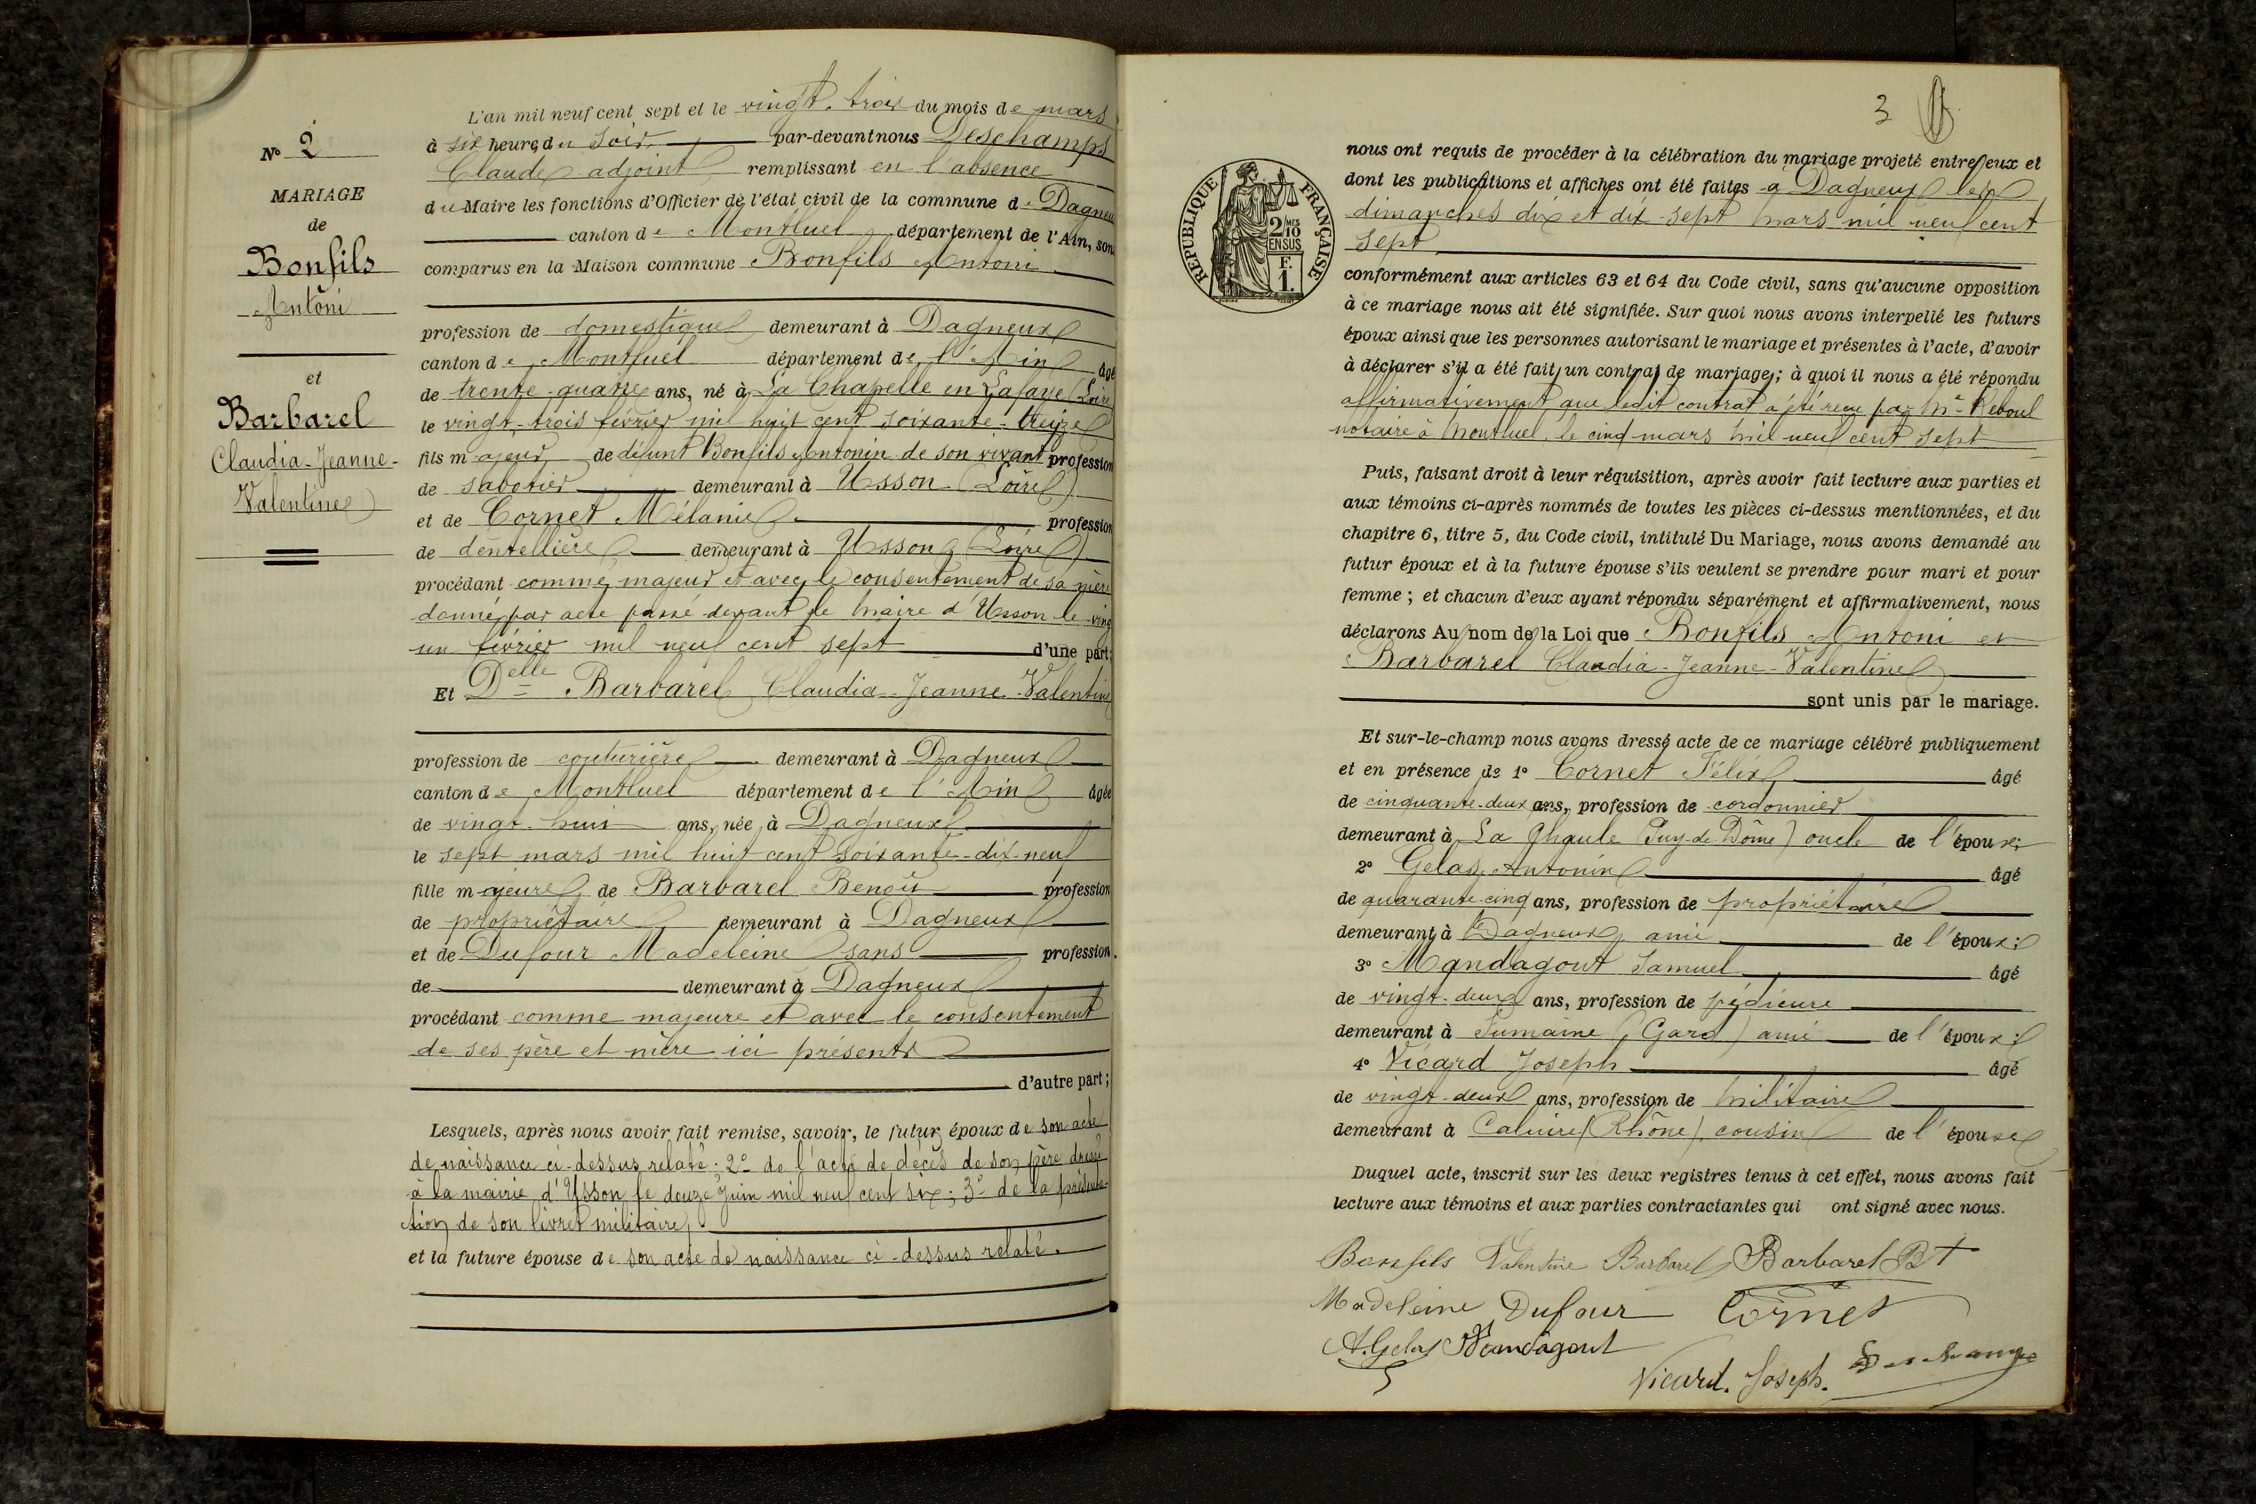 N° 2
MARIAGE
de
Bonfils
Antoni
et
Barbarel
Claudia-Jeanne-
Valentine
L'an mil neuf cent sept et le vingt-trois du mois de mars
à six heures du soir par-devant nous Deschamps
Claude adjoint remplissant en l'absence
du Maire les fonctions d'Officier de l'état civil de la commune de Dagneux
canton de Montluel département de l'Ain, son
comparus en la Maison commune Bonfils Antoni
profession de domestique demeurant à Dagneux
canton de Montluel département de l'Ain âgé
de trente-quatre ans, né à La Chapelle en Lafaye (Loire
le vingt-trois février mil huit cent soixante-treize
fils majeur de défunt Bonfils Antonin de son vivant profession
de sabotier demeurant à Usson (Loire)
et de Cornet Mélanie profession
de dentellière demeurant à Usson (Loire)
procédant comme majeur et avec le consentement de sa mère
donné par acte passé devant le maire d'Usson le ving
un février mil neuf cent sept d'une part;
Et Delle Barbarel Claudia-Jeanne-Valentine
profession de couturière demeurant à Dagneux
canton de Montluel département de l'Ain âgée
de vingt-huit ans, née à Dagneux
le sept mars mil huit cent soixante-dix-neuf
fille majeure de Barbarel Benoît profession
de propriétaire demeurant à Dagneux
et de Dufour Madeleine sans profession.
de demeurant à Dagneux
procédant comme majeure et avec le consentement
de ses père et mère ici présents
d'autre part;
Lesquels, après nous avoir fait remise, savoir, le futur époux de son acte
de naissance ci-dessus relaté; 2° de l'acte de décès de son père dressé
à la mairie d'Usson le douze Juin mil neuf cent six; 3° de la présenta-
tion de son livret militaire
et la future épouse de son acte de naissance ci-dessus relaté.
3
RÉPUBLIQUE FRANÇAISE
2/10
EN SUS
F.
1.
nous ont requis de procéder à la célébration du mariage projeté entre eux et
dont les publications et affiches ont été faites à Dagneux les
dimanches dix et dix-sept mars mil neuf cent
sept
conformément aux articles 63 et 64 du Code civil, sans qu'aucune opposition
à ce mariage nous ait été signifiée. Sur quoi nous avons interpellé les futurs
époux ainsi que les personnes autorisant le mariage et présentes à l'acte, d'avoir
à déclarer s'il a été fait un contrat de mariage; à quoi il nous a été répondu
affirmativement que ledit contrat a été reçu par Me Reboul
notaire à Montluel le cinq mars mil neuf cent sept
Puis, faisant droit à leur réquisition, après avoir fait lecture aux parties et
aux témoins ci-après nommés de toutes les pièces ci-dessus mentionnées, et du
chapitre 6, titre 5, du Code civil, intitulé Du Mariage, nous avons demandé au
futur époux et à la future épouse s'ils veulent se prendre pour mari et pour
femme; et chacun d'eux ayant répondu séparément et affirmativement, nous
déclarons Au nom de la Loi que Bonfils Antoni et
Barbarel Claudia-Jeanne-Valentine
sont unis par le mariage.
Et sur-le-champ nous avons dressé acte de ce mariage célébré publiquement
et en présence de 1° Cornet Félix âgé
de cinquante-deux ans, profession de cordonnier
demeurant à La Chaulme (Puy-de-Dôme) oncle de l'époux;
2° Gelas Antonin âgé
de quarante-cinq ans, profession de propriétaire
demeurant à Dagneux ami de l'époux;
3° Mandagout Samuel âgé
de vingt-deux ans, profession de
demeurant à Sumaine (Gard) ami de l'époux;
4° Vicard Joseph âgé
de vingt-deux ans, profession de militaire
demeurant à Caluire (Rhône), cousin de l'épouse
Duquel acte, inscrit sur les deux registres tenus à cet effet, nous avons fait
lecture aux témoins et aux parties contractantes qui ont signé avec nous.
Bonfils Valentine Barbarel Barbarel Bt
Madeleine Dufour Cornet
A. Gelas Mandagout
Vicard. Joseph. Deschamps